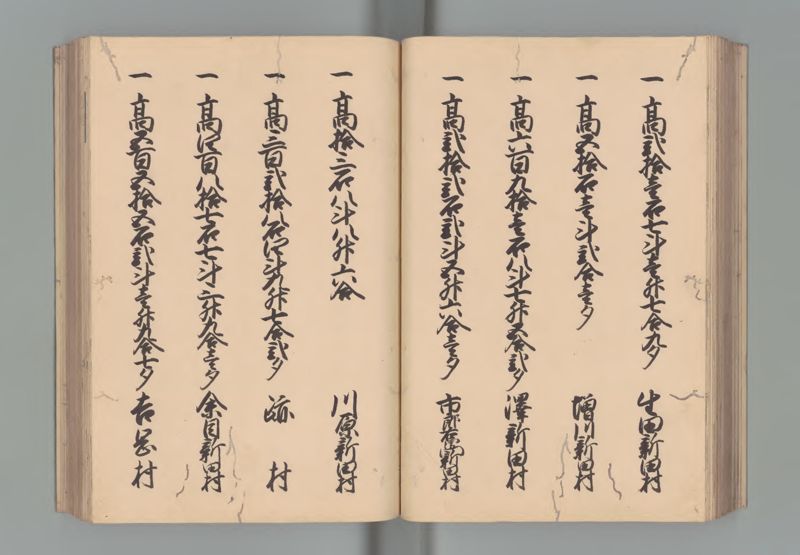 一 高弐拾壱石七斗壱升七合九夕 生田新田村
一 高五拾石壱斗弐合壱夕 増川新田村
一 高六百九拾壱石八斗七升五合弐夕 澤新田村
一 高弐拾弐石弐斗五升六合壱夕 市郎右衛門新田村
一 高拾三石八斗八升六合 川原新田村
一 高三百弐拾八石四斗九升七合弐夕 跡村
一 高四百八拾七石七斗三升九合壱夕 余目新田村
一 高五百五拾五石弐斗壱升九合七夕 吉岡村